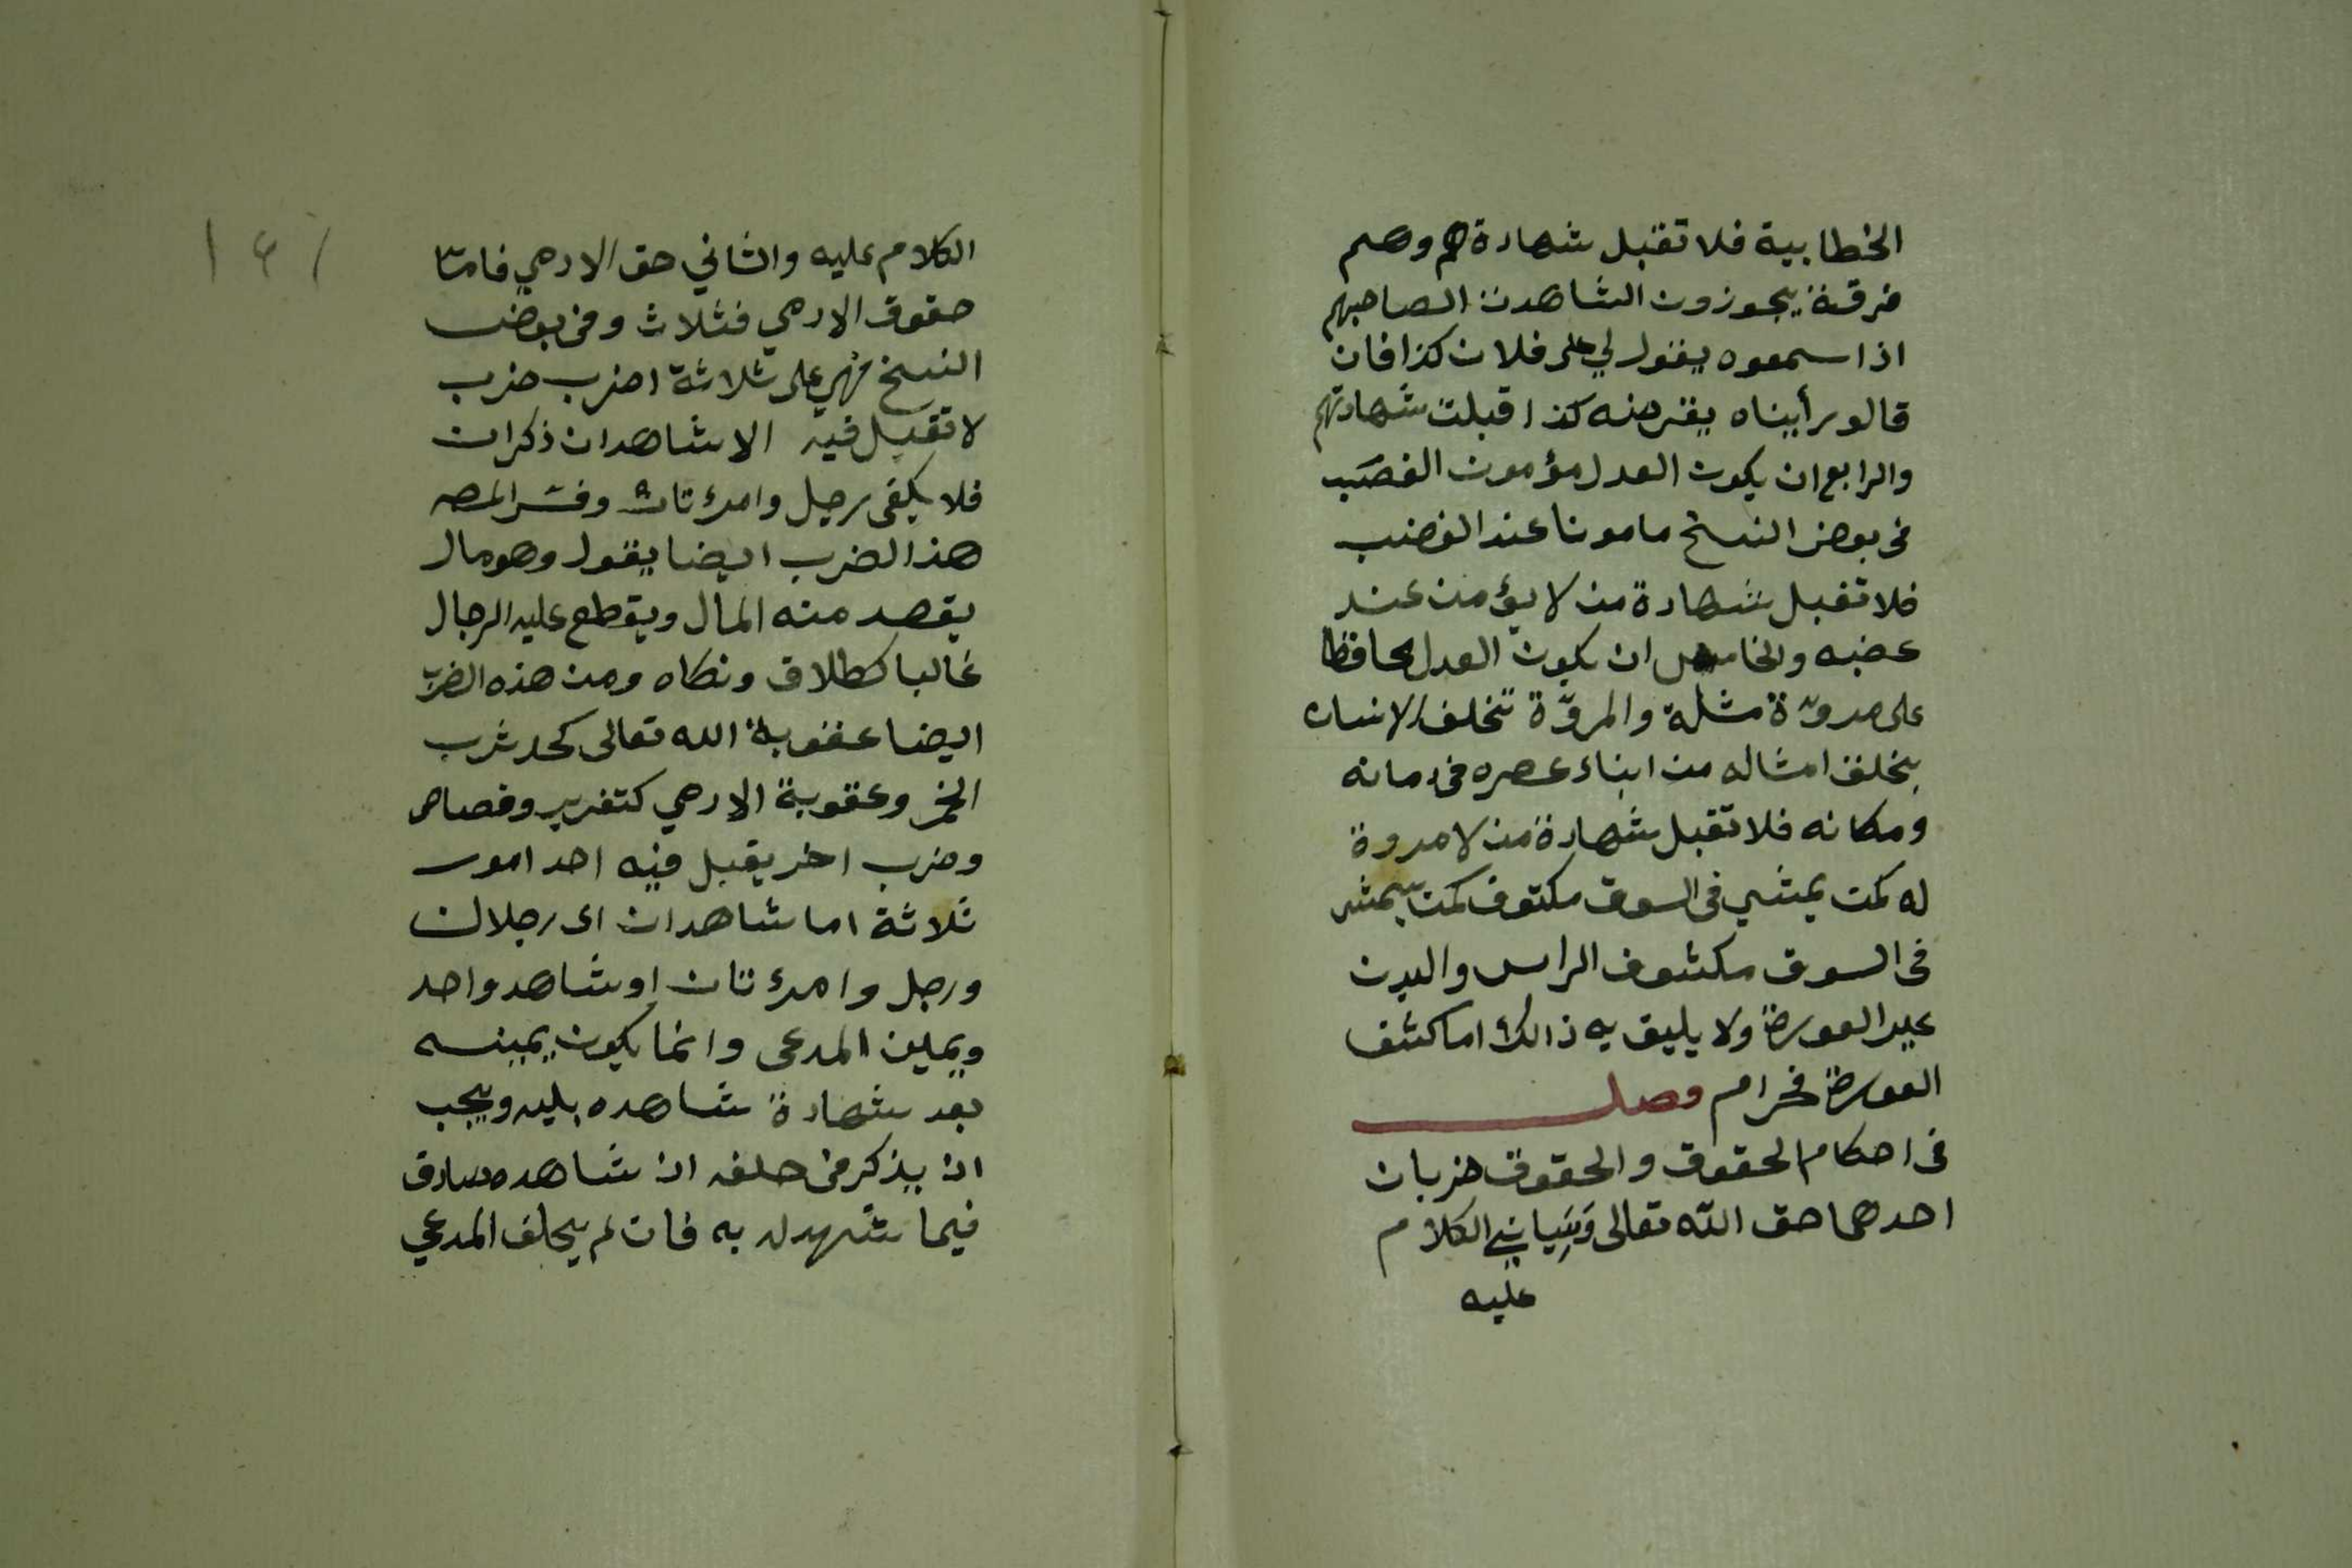 الخطابية فلا تقبل شهادة هم وهم
فرقة يجوزون الشاهدن لصاحبهم
اذا سمعوه يقول لي على فلان كذا فان
قالو رأيناه يقرضه كذا قبلت شهادتهم
والرابع ان يكون العدل مؤمون الغضب
فى بعض النسخ مامونا عند الغضب
فلا تقبل شهادة من لا يؤمن عند
عضبه والخامس ان يكون العدل محافظا
على مروّة مثله والمروّة تخلف الانسان
بخلف امثاله من ابناء عصره فى زمانه
ومكانه فلا تقبل شهادة من لا مروة
له كمن يمشي فى السوق مكتوف كمن يمشى
فى السوق مكشوف الراس والبدن
غير العورة ولا يليق به ذالك اما كشف
العورة فحرام فصل
فى احكام الحقوق والحقوق ضربان
احدهما حق الله تعالى وسياتي الكلام
عليه
١٤١
الكلام عليه والثاني حق الادمي فاما
حقوق الادمي فثلاث وفى بعض
النسخ فهي على ثلاثة اضرب ضرب
لا تقبل فيه الا شاهدان ذكران
فلا يكفى رجل وامرءتان وفسر المصـ
هذا الضرب ايضا يقول وهو مال
يقصد منه المال ويقطع عليه الرجال
غالبا كطلاق ونكاه ومن هذه الضرب
ايضا عفوبة الله تعالى كحد شرب
الخمر وعقوبة الادمي كتعزير وقصاص
وضرب اخر يقبل فيه احد امور
ثلاثة اما شاهدان اى رجلان
ورجل وامرءتان او شاهد واحد
ويمين المدعى وانما يكون يمينه
بعد شهادة شاهده بليه ويجب
ان يذكر فى حلفه ان شاهده صادق
فيما شهد له به فان لم يحلف المدعي